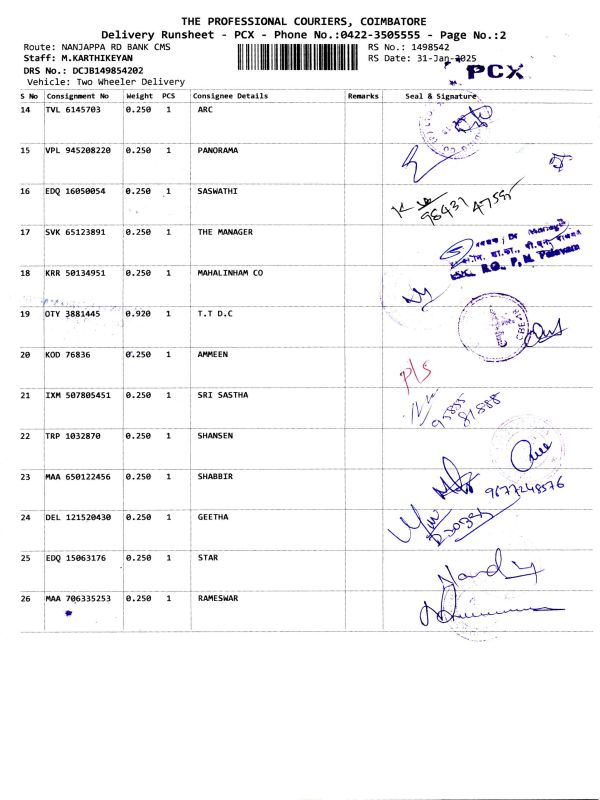 THE PROFESSIONAL COURIERS, COIMBATORE
Delivery Runsheet - PCX - Phone No.:0422-3505555 - Page No.:2
Route: NANJAPPA RD BANK CMS RS No.: 1498542
Staff: M.KARTHIKEYAN RS Date: 31-Jan-2025
PCX
DRS No.: DCJB149854202
Vehicle: Two Wheeler Delivery
S No Consignment No Weight PCS Consignee Details Remarks Seal & Signature
14 TVL 6145703 0.250 1 ARC
15 VPL 945208220 0.250 1 PANORAMA
16 EDQ 16050054 0.250 1 SASWATHI
98431
17 SVK 65123891 0.250 1 THE MANAGER
18 KRR 50134951 0.250 1 MAHALINHAM CO
19 OTY 3881445 0.920 1 T.T D.C
20 KOD 76836 0.250 1 AMMEEN
P/S
21 IXM 507805451 0.250 1 SRI SASTHA
95855
81888
22 TRP 1032870 0.250 1 SHANSEN
23 MAA 650122456 0.250 1 SHABBIR
9677248576
24 DEL 121520430 0.250 1 GEETHA
25 EDQ 15063176 0.250 1 STAR
26 MAA 706335253 0.250 1 RAMESWAR